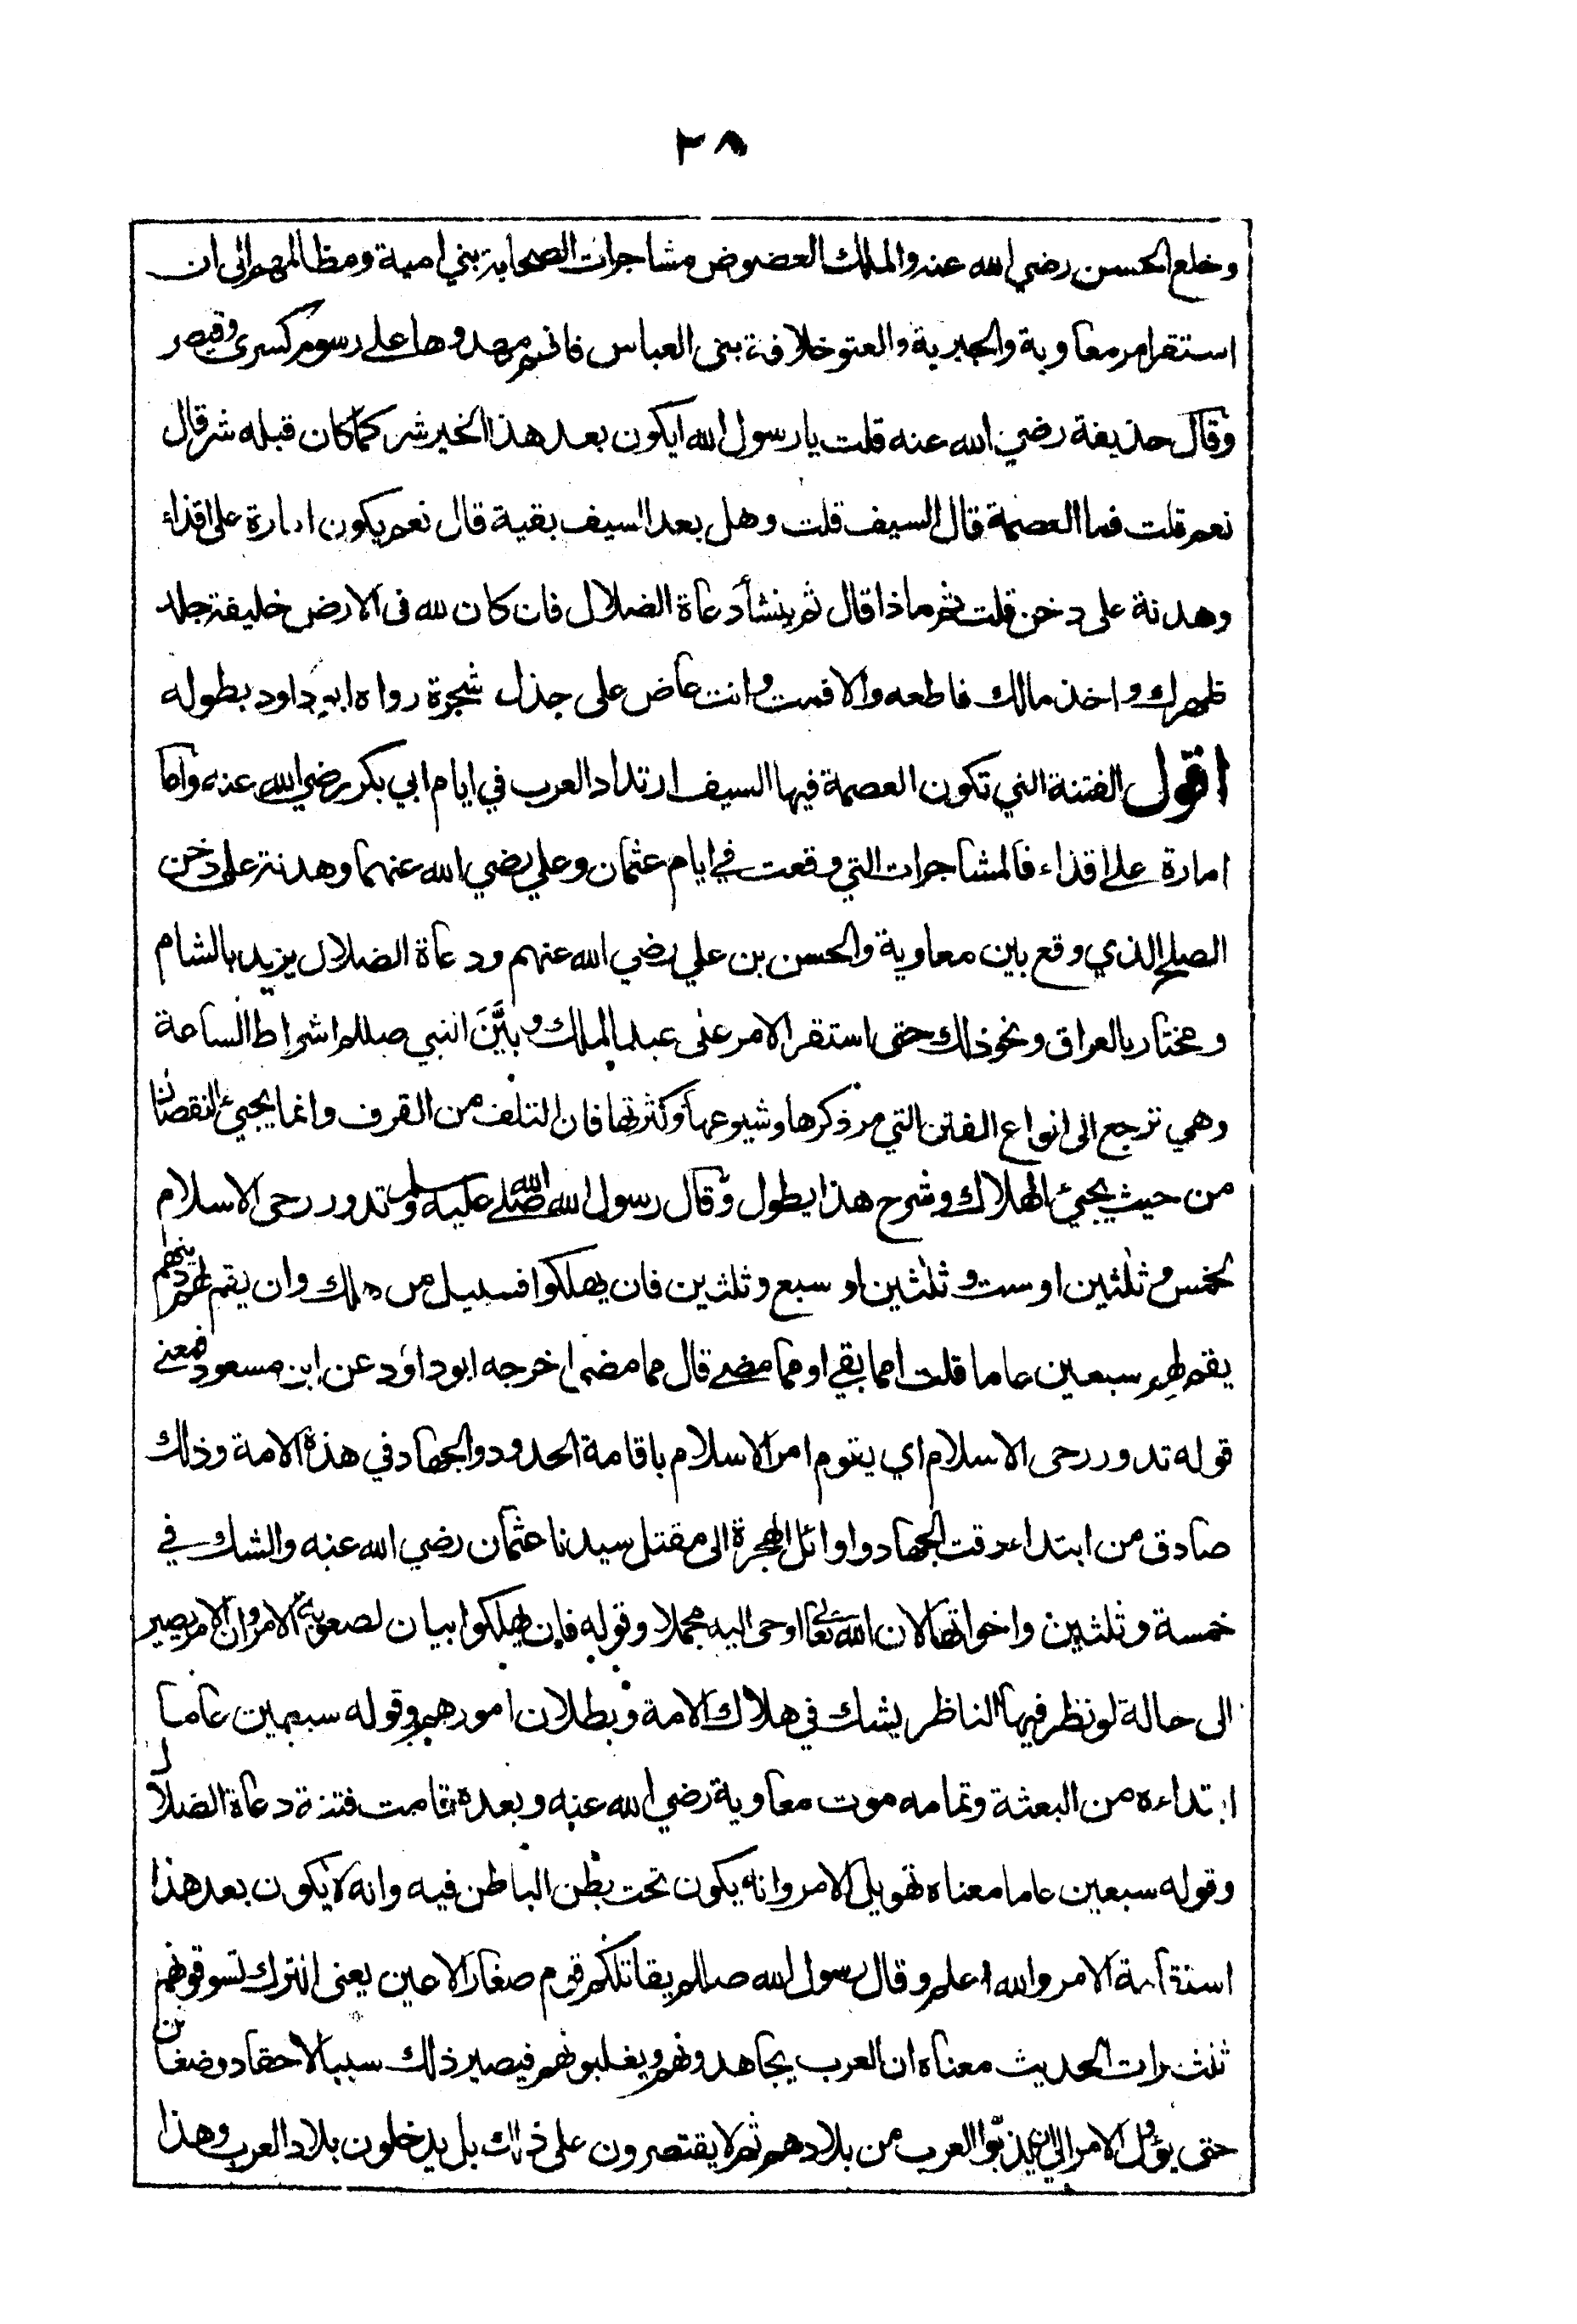 ٢٨
وخلع الحسن رضي الله عنه والملك العضوض مشاجرات الصحابة بني امية ومظالمهم الى ان
استقر امر معاوية والجبرية والعتو خلافة بنى العباس فانهم مهدوها على رسوم كسرى وقيصر
وقال حذيفة رضي الله عنه قلت يا رسول الله ايكون بعد هذا الخير شر كما كان قبله شر قال
نعم قلت فما العصمة قال السيف قلت وهل بعد السيف بقية قال نعم يكون امارة على اقذاء
وهدنة على دخن قلت ثم ماذا قال ثم ينشأ دعاة الضلال فان كان لله فى الارض خليفة جلد
ظهرك واخذ مالك فاطعه والا فمت وانت عاض على جذل شجرة رواه ابو داود بطوله
اقول الفتنة التي تكون العصمة فيها السيف ارتداد العرب في ايام ابي بكر رضي الله عنه واما
امارة على اقذاء فالمشاجرات التي وقعت في ايام عثمان وعلي رضي الله عنهما وهدنة على دخن
الصلح الذي وقع بين معاوية والحسن بن علي رضي الله عنهم ودعاة الضلال يزيد بالشام
ومختار بالعراق ونحو ذلك حتى استقر الامر على عبد الملك وبَيَّنَ النبي صللم اشراط الساعة
وهي ترجع الى انواع الفتن التي مر ذكرها وشيوعها وكثرتها فان التلف من القرف وانما يجيئ النقصان
من حيث يجيئ الهلاك وشرح هذا يطول وقال رسول الله صلى الله عليه وسلم تدور رحى الاسلام
لخمس وثلثين او ست وثلثين او سبع وثلثين فان يهلكوا فسبيل من هلك وان يقم لهم دينهم
يقم لهم سبعين عاما قلت امما بقي او مما مضى قال مما مضى اخرجه ابو داود عن ابن مسعود فمعنى
قوله تدور رحى الاسلام اي يقوم امر الاسلام باقامة الحدود والجهاد في هذه الامة وذلك
صادق من ابتداء وقت الجهاد واوائل الهجرة الى مقتل سيدنا عثمان رضي الله عنه والشك في
خمسة وثلثين واخواتها لان الله تعالى اوحى اليه مجملا وقوله فان يهلكوا بيان لصعوبة الامر وان الامر يصير
الى حالة لو نظر فيها الناظر يشك في هلاك الامة وبطلان امورهم وقوله سبعين عاما
ابتداءه من البعثة وتمامه موت معاوية رضي الله عنه وبعده قامت فتنة دعاة الضلال
وقوله سبعين عاما معناه تهويل الامر وانه يكون تحت بطن الباطن فيه وانه لا يكون بعد هذا
استقامة الامر والله اعلم وقال رسول الله صللم يقاتلكم قوم صغار الاعين يعنى الترك تسوقونهم
ثلث مرات الحديث معناه ان العرب يجاهدونهم ويغلبونهم فيصير ذلك سببا لاحقاد وضغائن
حتى يؤل الامر الى ان يذبوا العرب من بلادهم ثم لا يقتصرون على ذلك بل يدخلون بلاد العرب وهذا